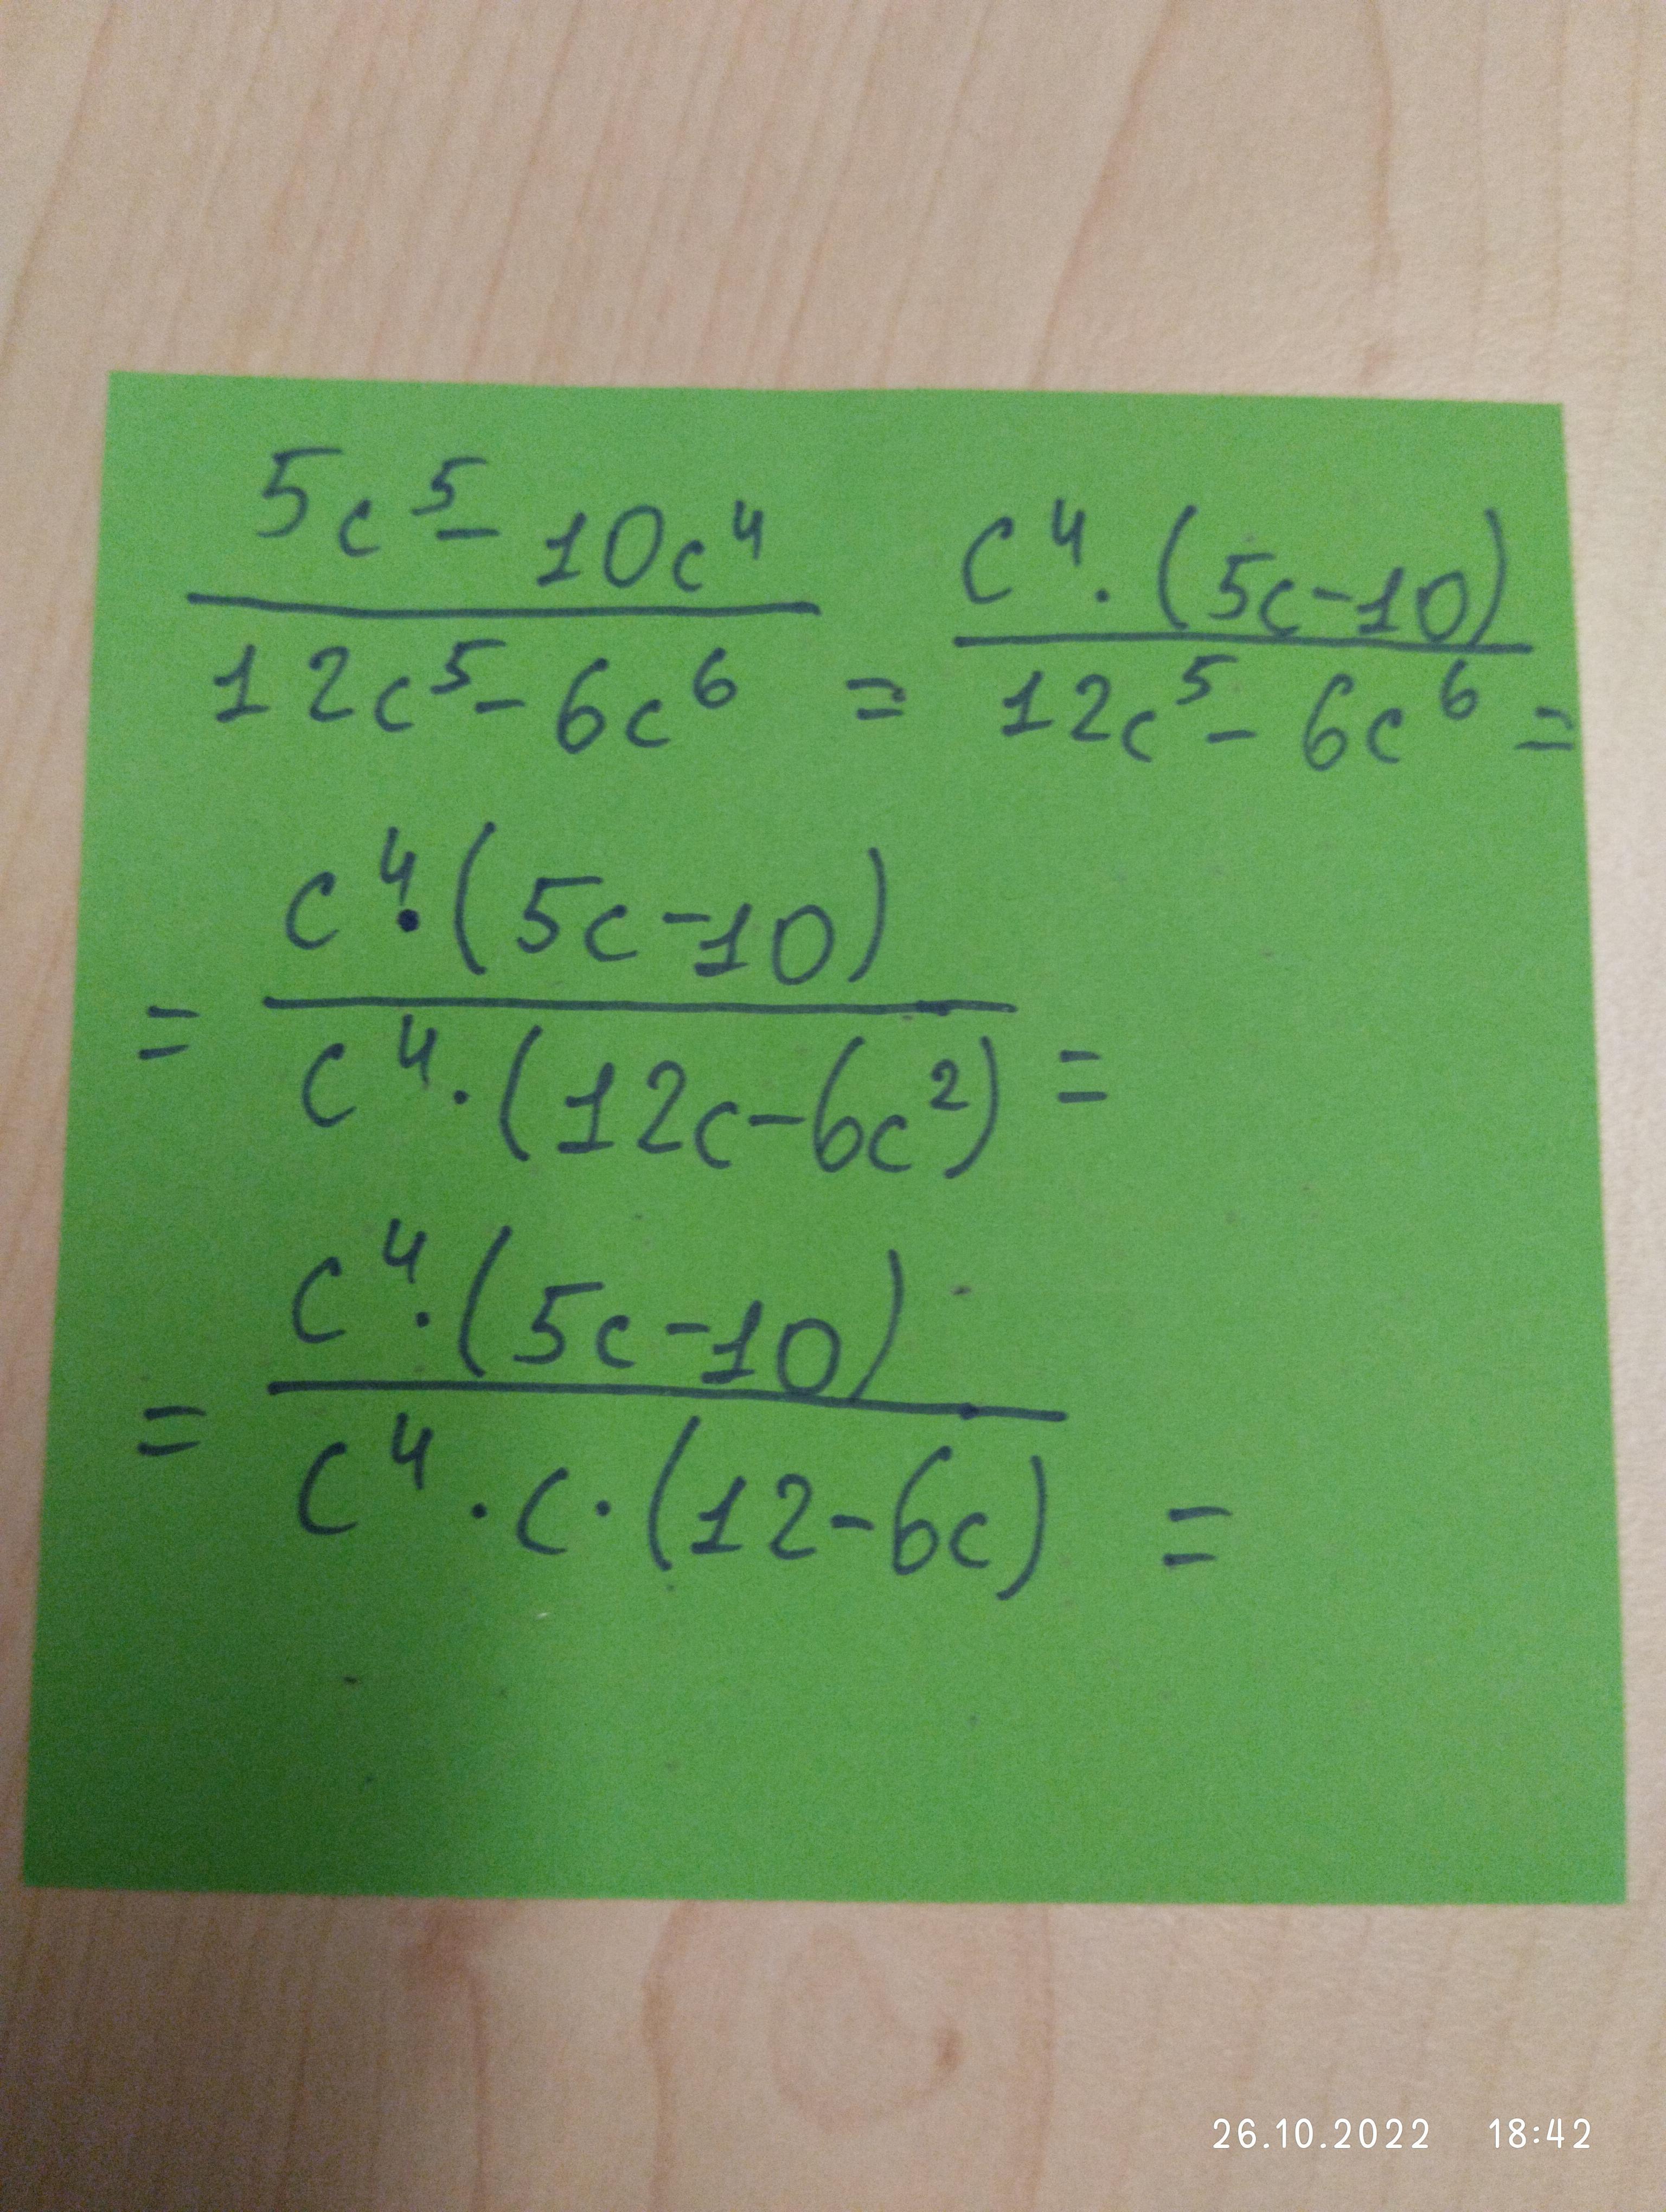 \frac{5c^5 - 10c^4}{12c^5 - 6c^6} = \frac{c^4 \cdot (5c - 10)}{12c^5 - 6c^6} =
= \frac{c^4 \cdot (5c - 10)}{c^4 \cdot (12c - 6c^2)} =
= \frac{c^4 \cdot (5c - 10)}{c^4 \cdot c \cdot (12 - 6c)} =
26.10.2022 18:42